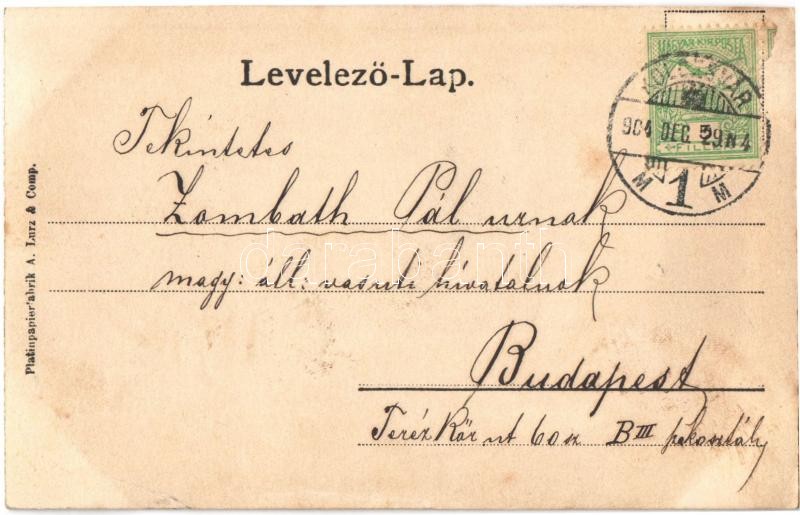 Levelező-Lap.
MAGYAR KIR. POSTA
KOLOZSVÁR
904 DEC. 29 N4
5
FILLÉR
M 1 M
Tekintetes
Zombath Pál urnak
magy: áll: vasuti hivatalnok
Budapest
Teréz Kör ut 60 sz B III
darabanth
Platinpapierfabrik A. Lurz & Comp.